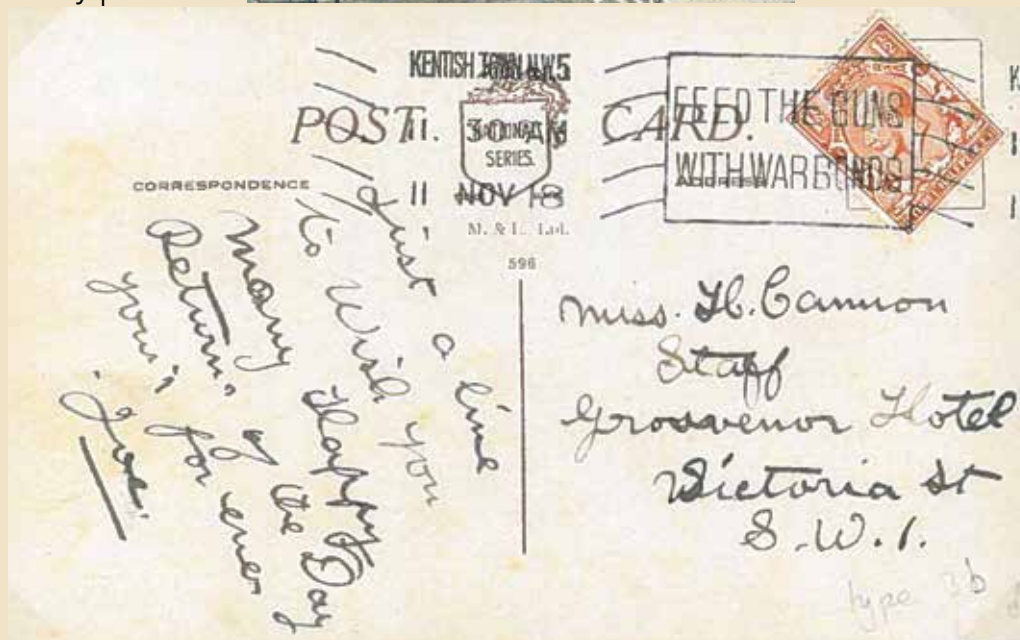 KENTISH TOWN N.W.5
11. 30 AM
11 NOV 18
FEED THE GUNS
WITH WAR BONDS
POST CARD.
NATIONAL
SERIES.
CORRESPONDENCE
ADDRESS
M. & L. Ltd.
596
Just a line
to Wish you
Many Happy
Returns of the Day
your's for ever
Joe.
Miss. H. Cannon
Staff
Grosvenor Hotel
Victoria St
S.W.1.
type 3b